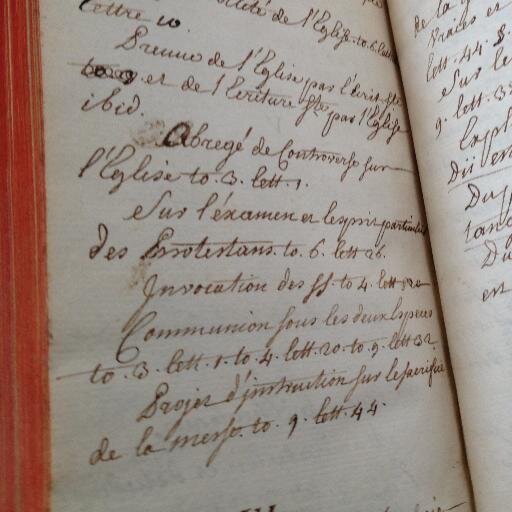 de l'Eglise to. 6. lettre
lettre 10.
Preuve de l'Eglise par l'écrit. ste
et de l'Ecriture ste par l'Eglise
ibid.
Abregé de Controverse sur
l'Eglise to. 3. lett. 1.
Sur l'éxamen et l'esprit particulier
des Protestans. to. 6. lett 26.
Invocation des SS. to 4. lett
Communion sous les deux Especes
to. 3. lett. 1. to 4. lett. 20. to. 9. lett 32.
Projet d'instruction sur le sacrifice
de la messe. to. 9. lett. 44.
de la
lett. 44.
Sur le
9. lett. 3
Du
Du
est